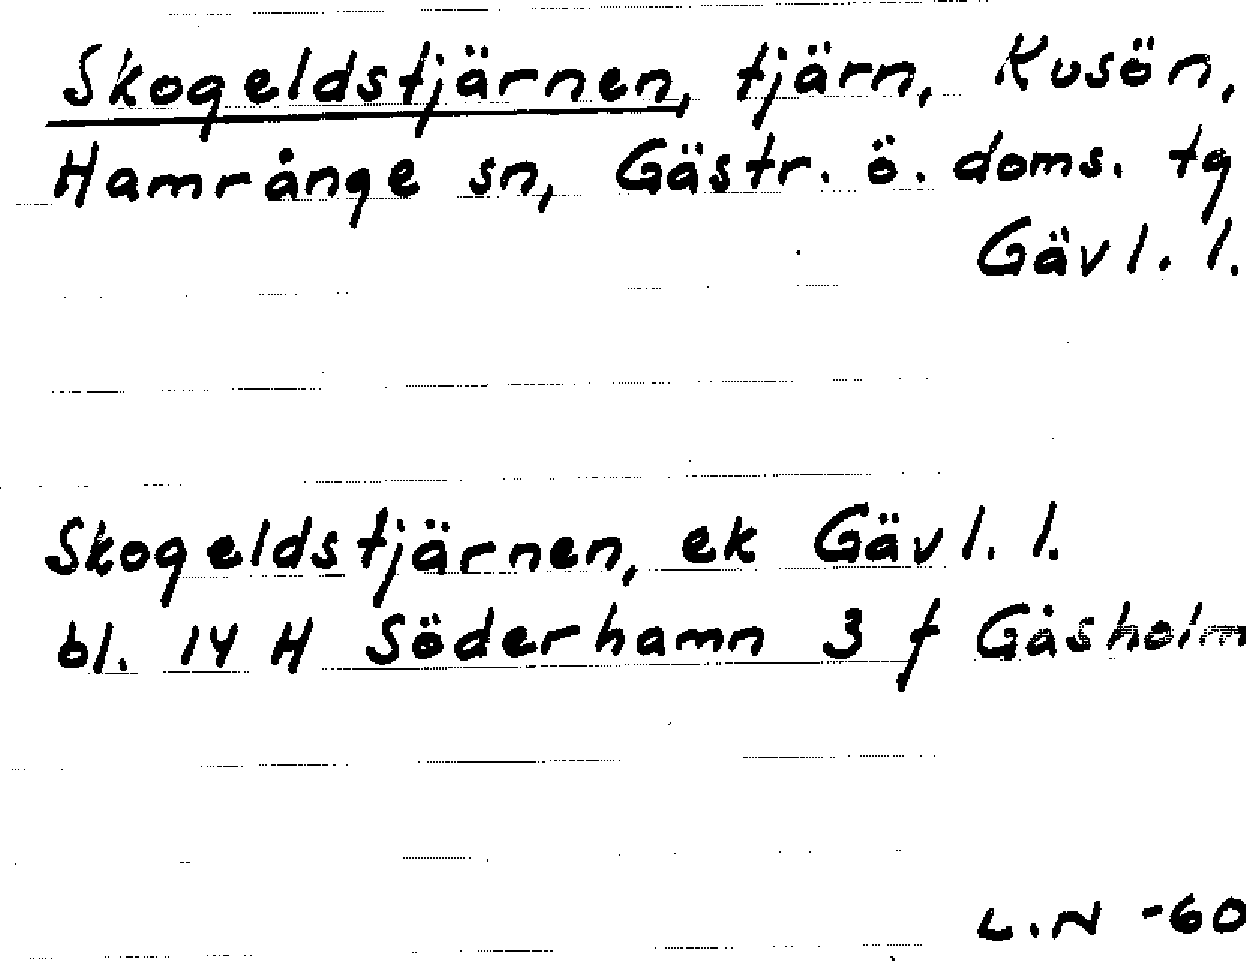 Skogeldstjärnen, tjärn, Kusön,
Hamrånge sn, Gästr. ö. doms. tg
Gävl. l.
Skogeldstjärnen, ek Gävl. l.
bl. 14 H Söderhamn 3 f Gåsholm
L.N -60